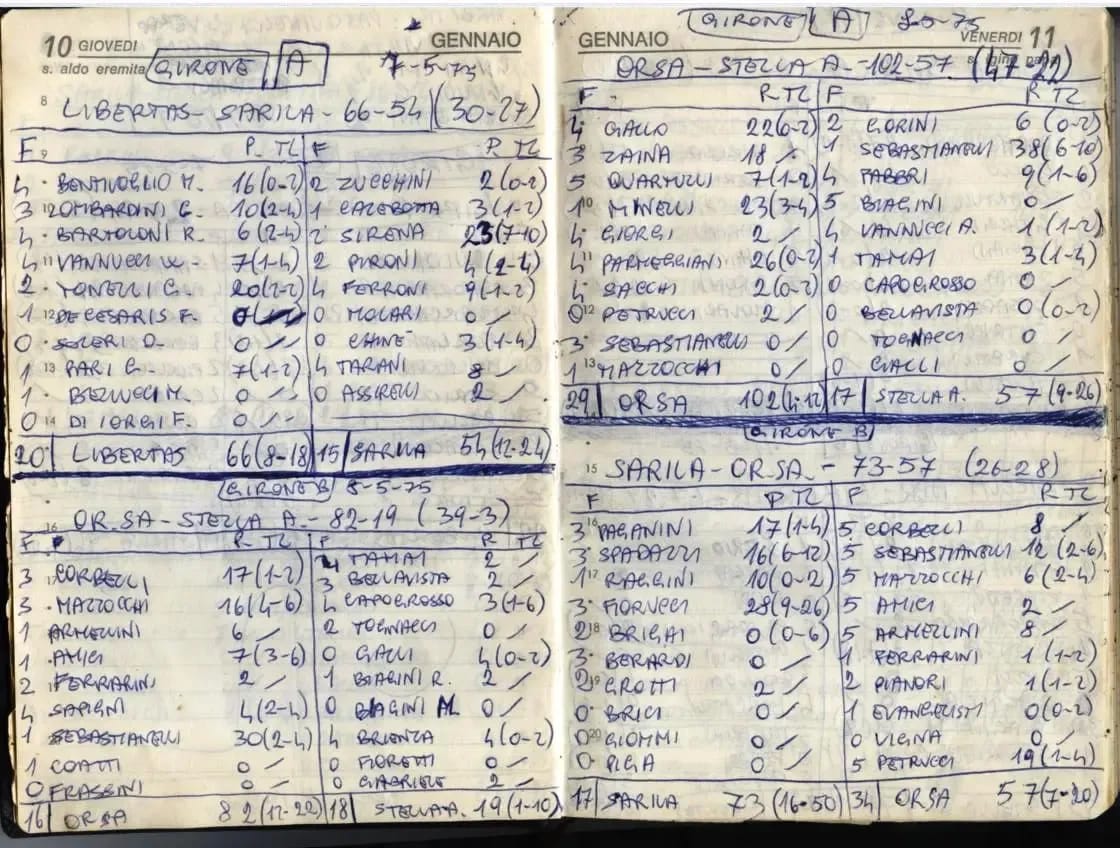 10 GIOVEDI GENNAIO
s. aldo eremita GIRONE A 7-5-75
8 LIBERTAS - SARILA - 66-54 (30-27)
F 9 P. TL F P. TL
4 BENTIVOGLIO M. 16(0-2) 2 ZUCCHINI 2(0-2)
3 LOMBARDINI G. 10(2-4) 1 CALEBOTTA 3(1-2)
4 BARTOLONI R. 6(2-4) 2 SIRENA 23(7-10)
4 11 VANNUCCI 7(1-4) 2 PIRONI 4(2-4)
2 TONELLI C. 20(2-2) 4 FERRONI 9(1-2)
1 12 DE CESARIS F. 0 MOLARI 0 /
0 SOLERI D. 0 / 0 CHINE 3(1-4)
1 13 PARI G. 7(1-2) 4 TARANI 8 /
1 BELLUCCI M. 0 / 0 ASSIRELLI 2 /
0 14 DI IORGI F. 0 /
20 LIBERTAS 66(8-18) 15 SARILA 54(12-24)
GIRONE B 8-5-75
16 OR.SA - STELLA A. - 82-19 (39-3)
F P. TL F P TL
4 TAMAI 2 /
3 CORBELLI 17(1-2) 3 BELLAVISTA 2 /
3 MAZZOCCHI 16(4-6) 4 CAPOGROSSO 3(1-6)
1 ARMELLINI 6 / 2 TOGNACCI 0 /
1 AMICI 7(3-6) 0 GIALLI 4(0-2)
2 FERRARINI 2 / 1 BIAGINI R. 2 /
4 SAPIGNI 4(2-4) 0 BIAGINI M. 0 /
1 SEBASTIANELLI 30(2-4) 4 BRIENZA 4(0-2)
1 COATTI 0 / 0 FIORETTI 0 /
0 FRASSINI 0 / 0 GABRIELE 2 /
16 ORSA 82(12-22) 18 STELLA A. 19(1-10)
GIRONE A 8-5-75
GENNAIO VENERDI 11
ORSA - STELLA A. - 102-57 (47-22)
F P. TL F P. TL
4 GALLO 22(0-2) 2 GORINI 6(0-2)
3 ZAINA 18 / 1 SEBASTIANELLI 38(6-10)
5 QUARTULLI 7(1-2) 4 FABBRI 9(1-6)
1 10 MINELLI 23(3-4) 5 BIAGINI 0 /
4 GIORGI 2 / 4 VANNUCCI A. 1(1-2)
4 11 PARMEGGIANI 26(0-2) 1 TAMAI 3(1-4)
4 SACCHI 2(0-2) 0 CAPOGROSSO 0 /
0 12 PETRUCCI 2 / 0 BELLAVISTA 0(0-2)
3 SEBASTIANELLI 0 / 0 TOGNACCI 0 /
1 13 MAZZOCCHI 0 / 0 GIALLI 0 /
29 ORSA 102(4-12) 17 STELLA A. 57(9-26)
GIRONE B
15 SARILA - ORSA - 73-57 (26-28)
F P TL F P TL
3 16 PAGANINI 17(1-4) 5 CORBELLI 8 /
3 SPADAZZI 16(6-12) 5 SEBASTIANELLI 12(2-6)
1 17 RAGGINI 10(0-2) 5 MAZZOCCHI 6(2-4)
3 FIORUCCI 28(9-26) 5 AMICI 2 /
2 18 BRIGHI 0(0-6) 5 ARMELLINI 8 /
3 BERARDI 0 / 1 FERRARINI 1(1-2)
2 19 GROTTI 2 / 2 PIANORI 1(1-2)
0 BRICI 0 / 1 EVANGELISTI 0(0-2)
0 20 GIOMMI 0 / 0 VIGNA 0 /
0 PIGA 0 / 5 PETRUCCI 19(1-4)
17 SARILA 73(16-50) 34 ORSA 57(7-20)